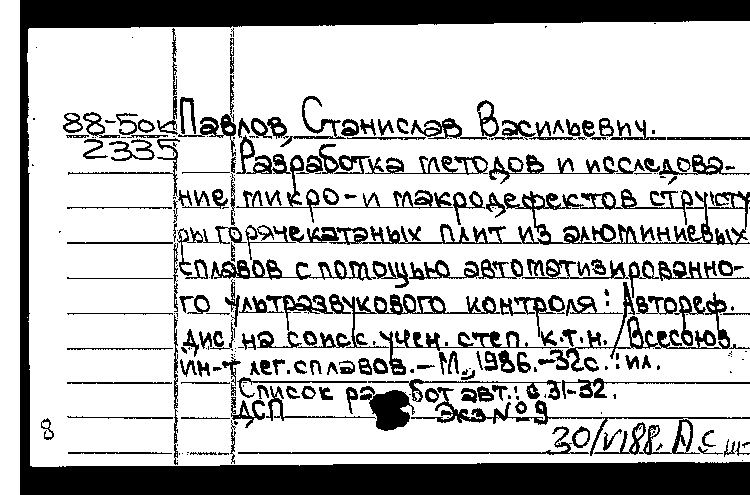 88-5ок Павлов, Станислав Васильевич.
2335 Разработка методов и исследова-
ние микро-и макродефектов структу
ры горячекатаных плит из алюминиевых
сплавов с помощью автоматизированно-
го ультразвукового контроля: Автореф.
дис. на соиск. учен. степ. к.т.н. / Всесоюз.
ин-т лег. сплавов. - М., 1986. - 32с.: ил.
Список работ авт.: с. 31-32.
ДСП Экз № 9
8
30/VI88. Д.с